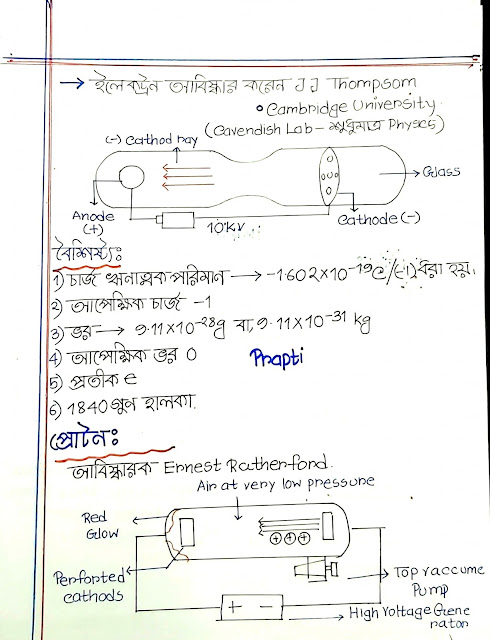 → ইলেকট্রন আবিষ্কার করেন J J Thompsom
• Cambridge University
(Cavendish Lab - শুধুমাত্র Physics)
(-) Cathod ray
→ Glass
Anode
(+)
10KV
Cathode (-)
বৈশিষ্ট্য:
১) চার্জ ঋনাত্মক পরিমান → -1.602×10⁻¹⁹C /(-1) ধরা হয়।
২) আপেক্ষিক চার্জ -1
৩) ভর → 9.11×10⁻²⁸g বা 9.11×10⁻³¹ kg
৪) আপেক্ষিক ভর 0
৫) প্রতীক e
৬) 1840 গুন হালকা.
Prapti
প্রোটন:
আবিষ্কারক Ernest Rutherford.
Air at very low pressure
Red
Glow
⊕⊕⊕
Perforted
cathods
Top vaccume
Pump
+ -
High Voltage Gene
rator